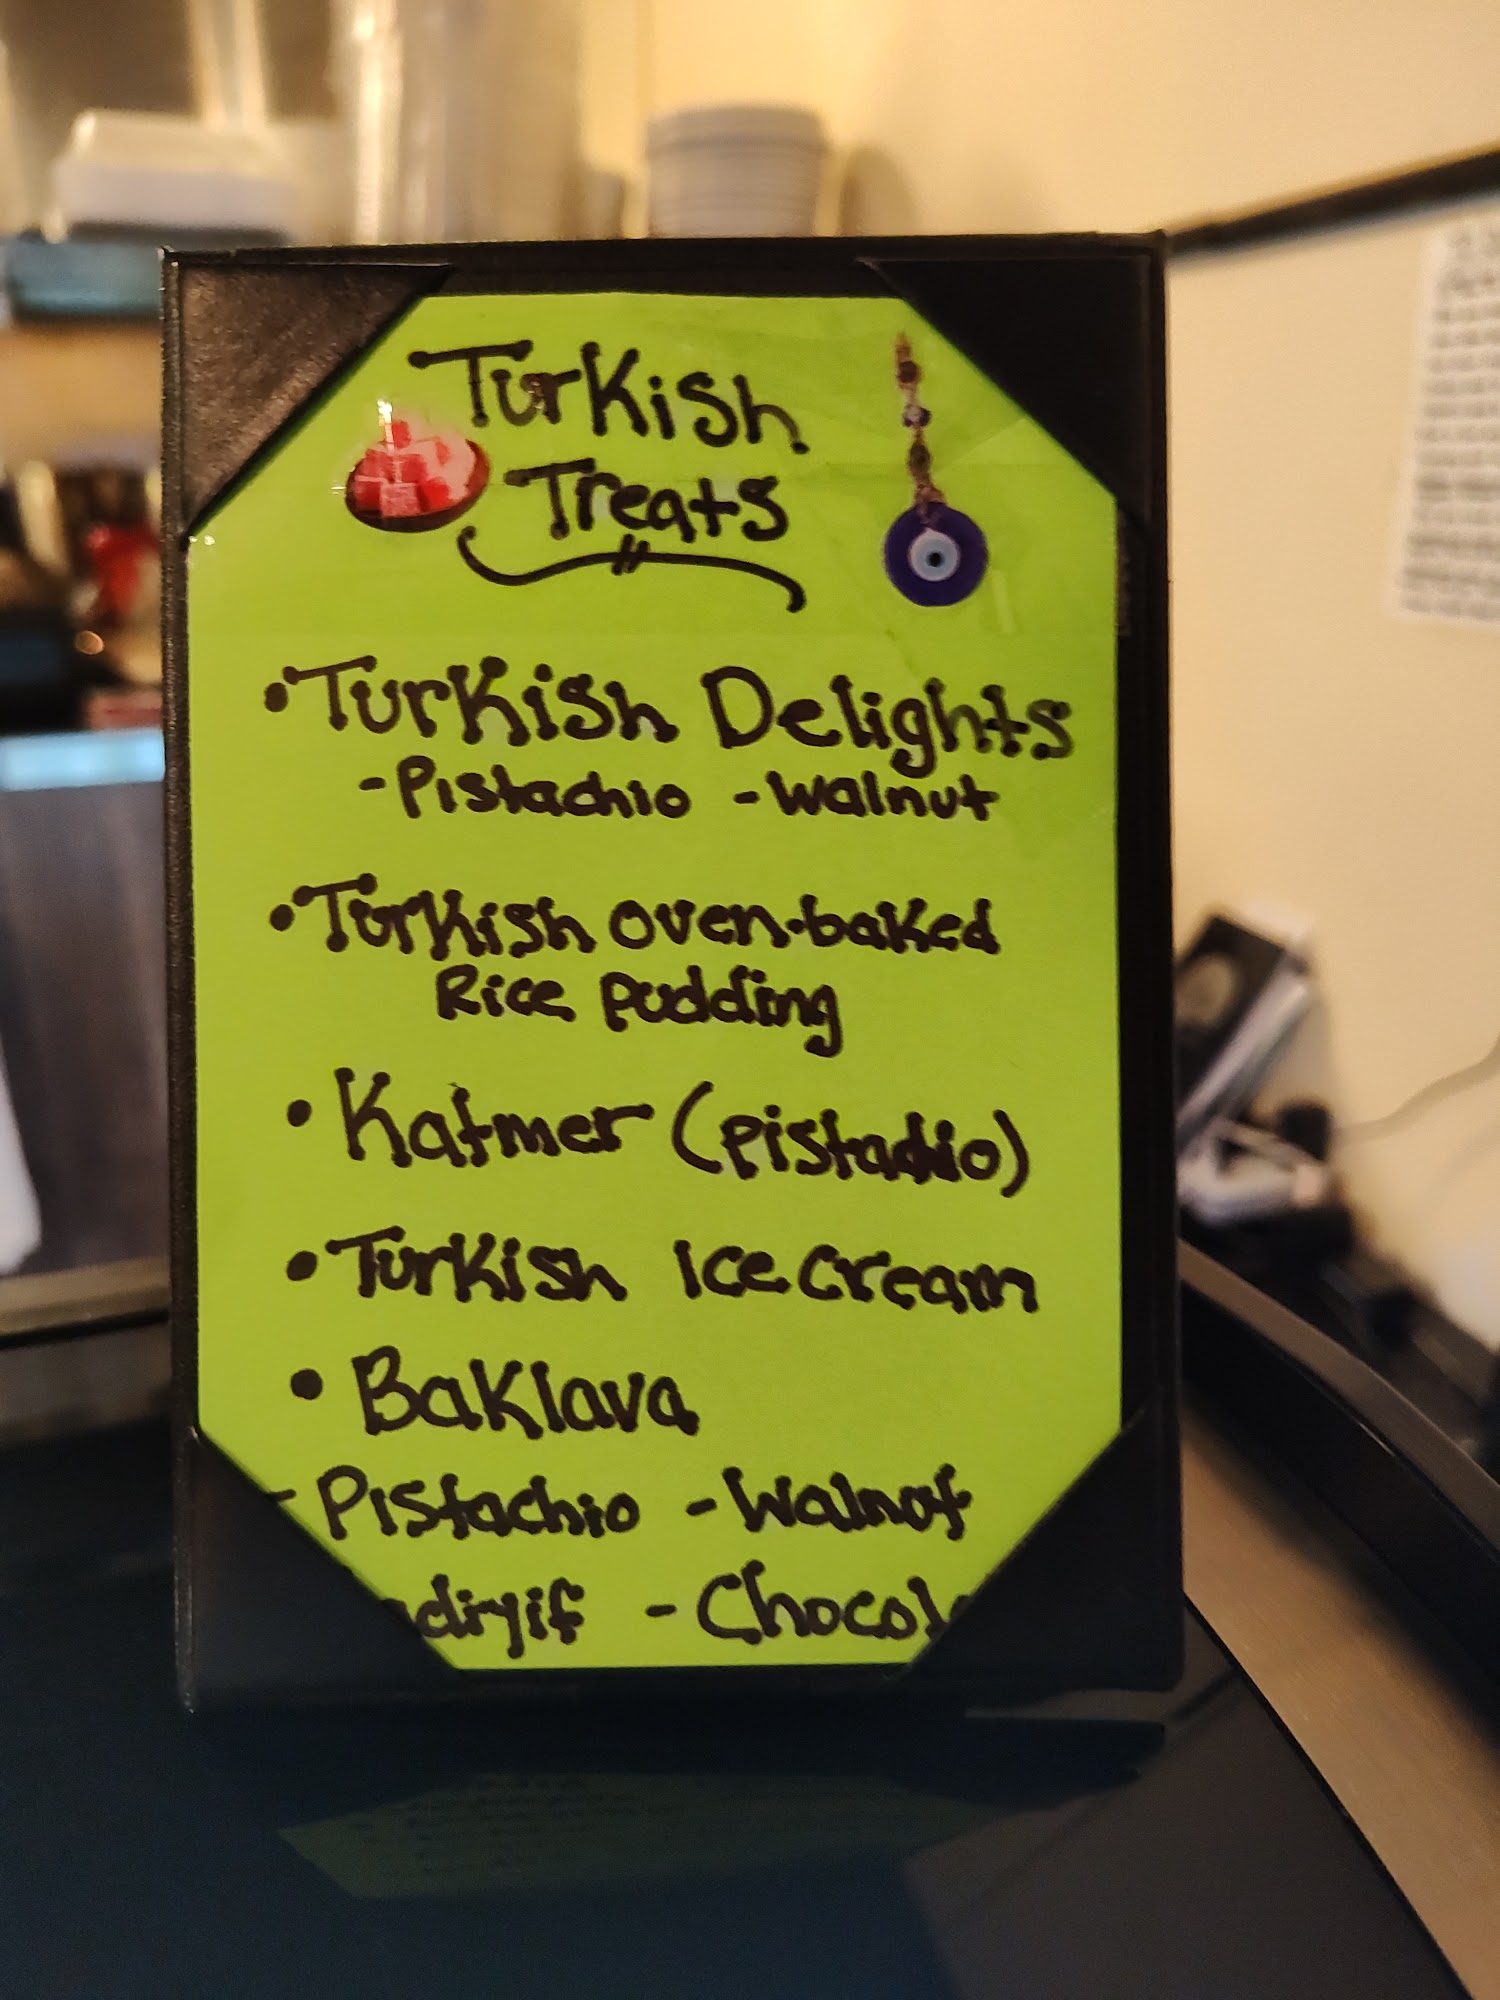 Turkish
Treats
• Turkish Delights
- Pistachio - Walnut
• Turkish oven-baked
Rice pudding
• Katmer (pistachio)
• Turkish Ice cream
• Baklava
- Pistachio - Walnut
- Chocol